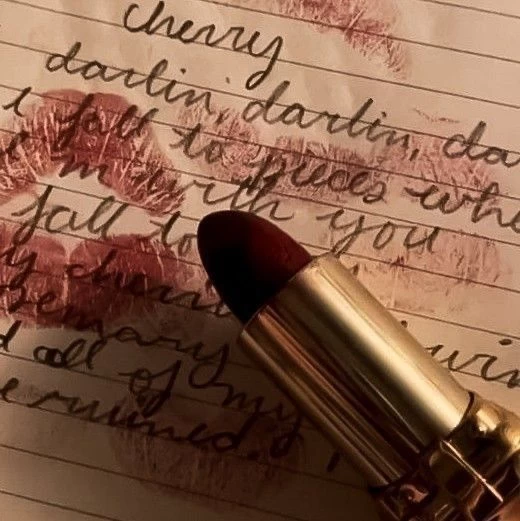 cherry
darlin, darlin, da
i fall to pieces whe
i'm with you
fall to
y cherri win
semary
d all of my
e ruined.